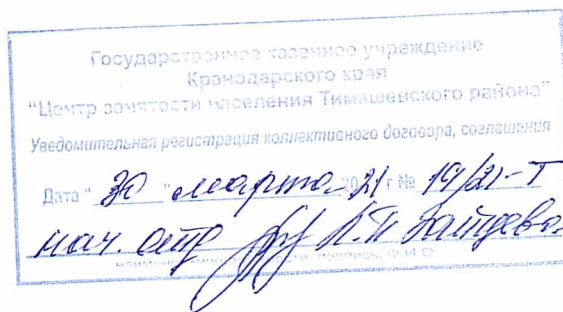 Государственное казенное учреждение
Кранодарского края
"Центр занятости населения Тимашевского района"
Уведомительная регистрация коллективного договора, соглашения
Дата " 30 " марта 2021 г № 19/21-Т
нач. отд Л.П. Зайцева
подпись, Ф И О